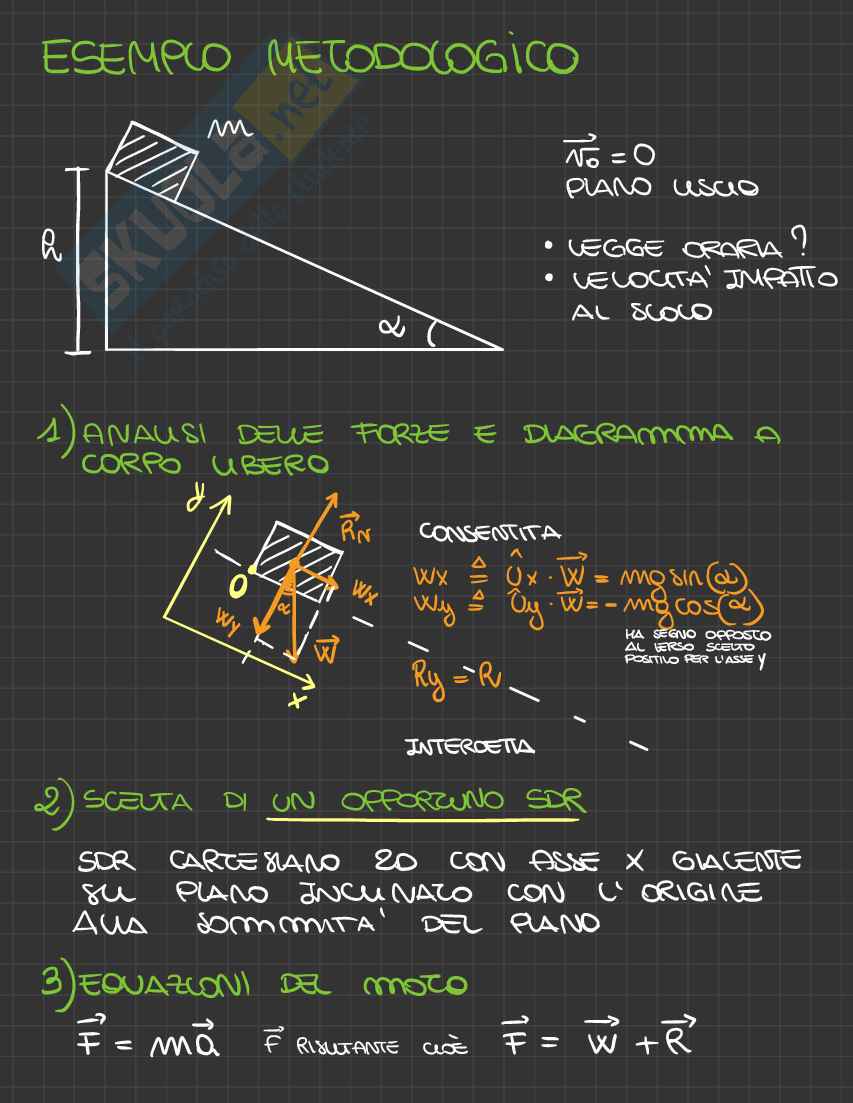 ESEMPIO METODOLOGICO
SKUOLA.net
m
h
α
v₀ = 0
PIANO LISCIO
• LEGGE ORARIA?
• VELOCITA' IMPATTO
AL SUOLO
1) ANALISI DELLE FORZE E DIAGRAMMMA A
CORPO LIBERO
y
R⃗N
O
Wx
Wy
α
W⃗
x
CONSENTITA
Wx ≜ Ûx · W⃗ = mg sin(α)
Wy ≜ Ûy · W⃗ = - mg cos(α)
HA SEGNO OPPOSTO
AL VERSO SCELTO
POSITIVO PER L'ASSE y
Ry = R
INTERDETTA
2) SCELTA DI UN OPPORTUNO SDR
SDR CARTESIANO 2D CON ASSE X GIACENTE
SUL PIANO INCLINATO CON L'ORIGINE
ALLA SOMMMITA' DEL PIANO
3) EQUAZIONI DEL MOTO
F⃗ = ma⃗ F⃗ RISULTANTE CIOÈ F⃗ = W⃗ + R⃗